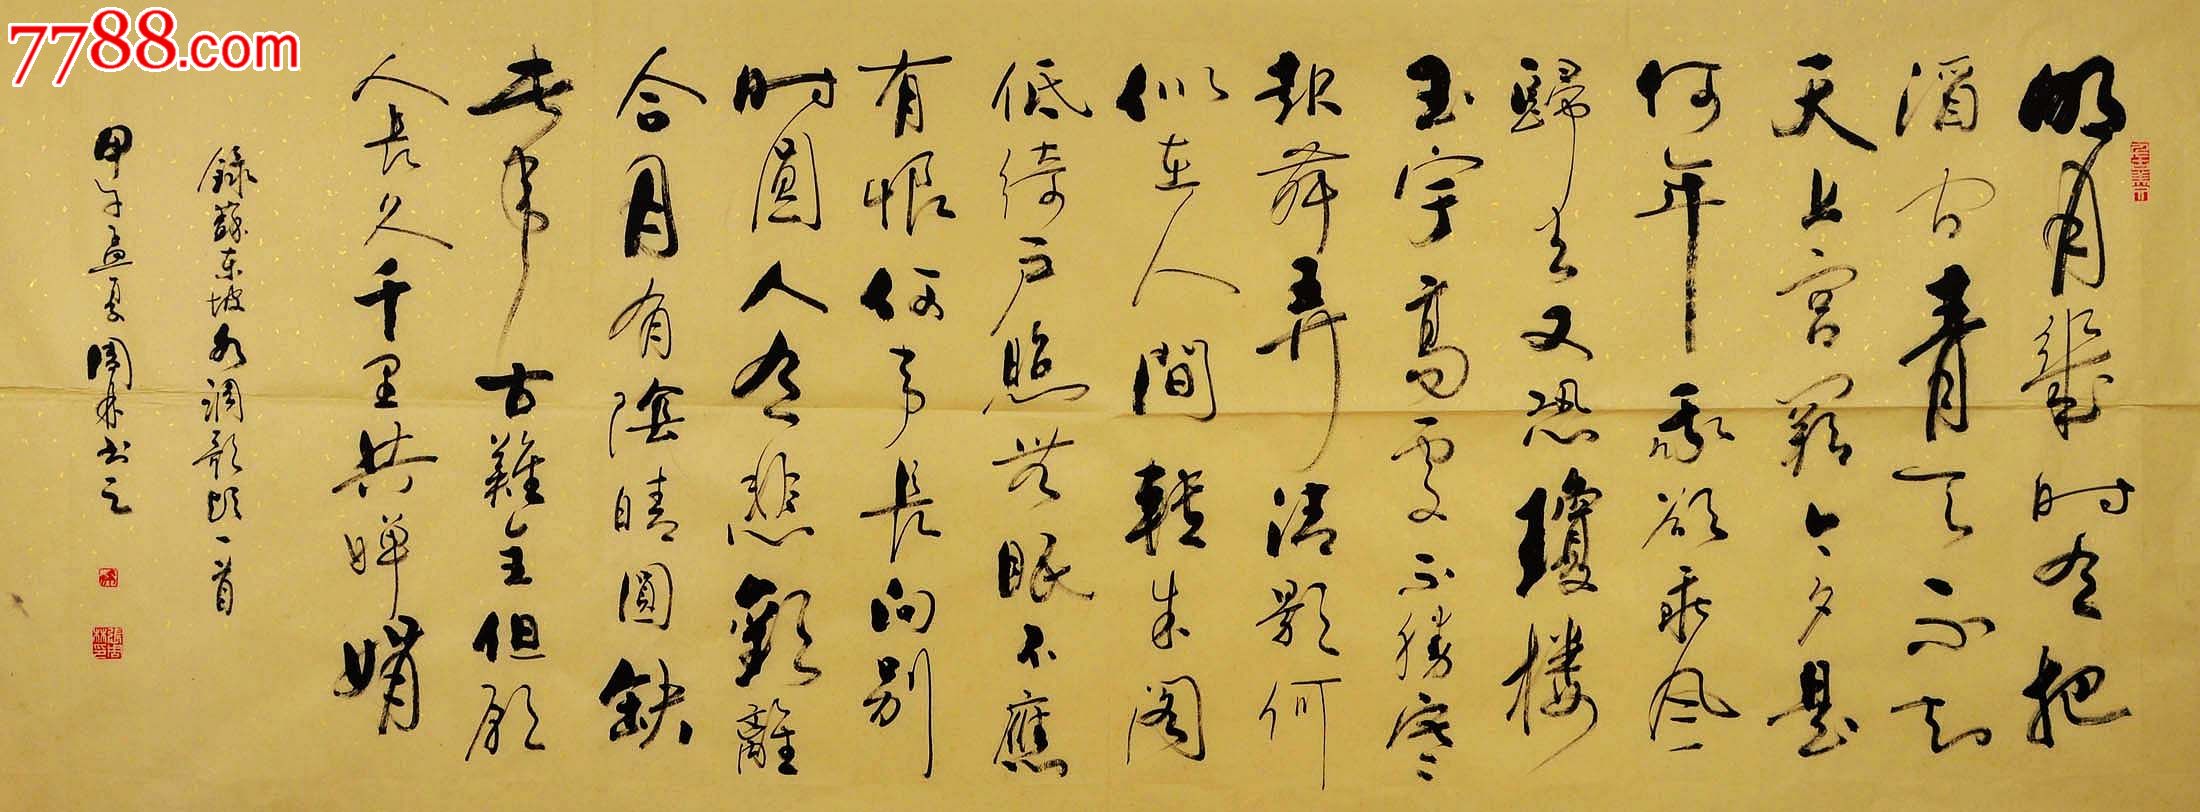 7788.com
明月幾时有把
酒问青天不知
天上宫闕今夕是
何年我欲乘风
歸去又恐瓊楼
玉宇高處不勝寒
起舞弄清影何
似在人間轉朱阁
低绮户照無眠不應
有恨何事長向别
时圓人有悲歡離
合月有陰晴圓缺
此事古難全但願
人長久千里共婵娟
錄蘇東坡水調歌頭一首
甲午孟夏周林书之
張周林印